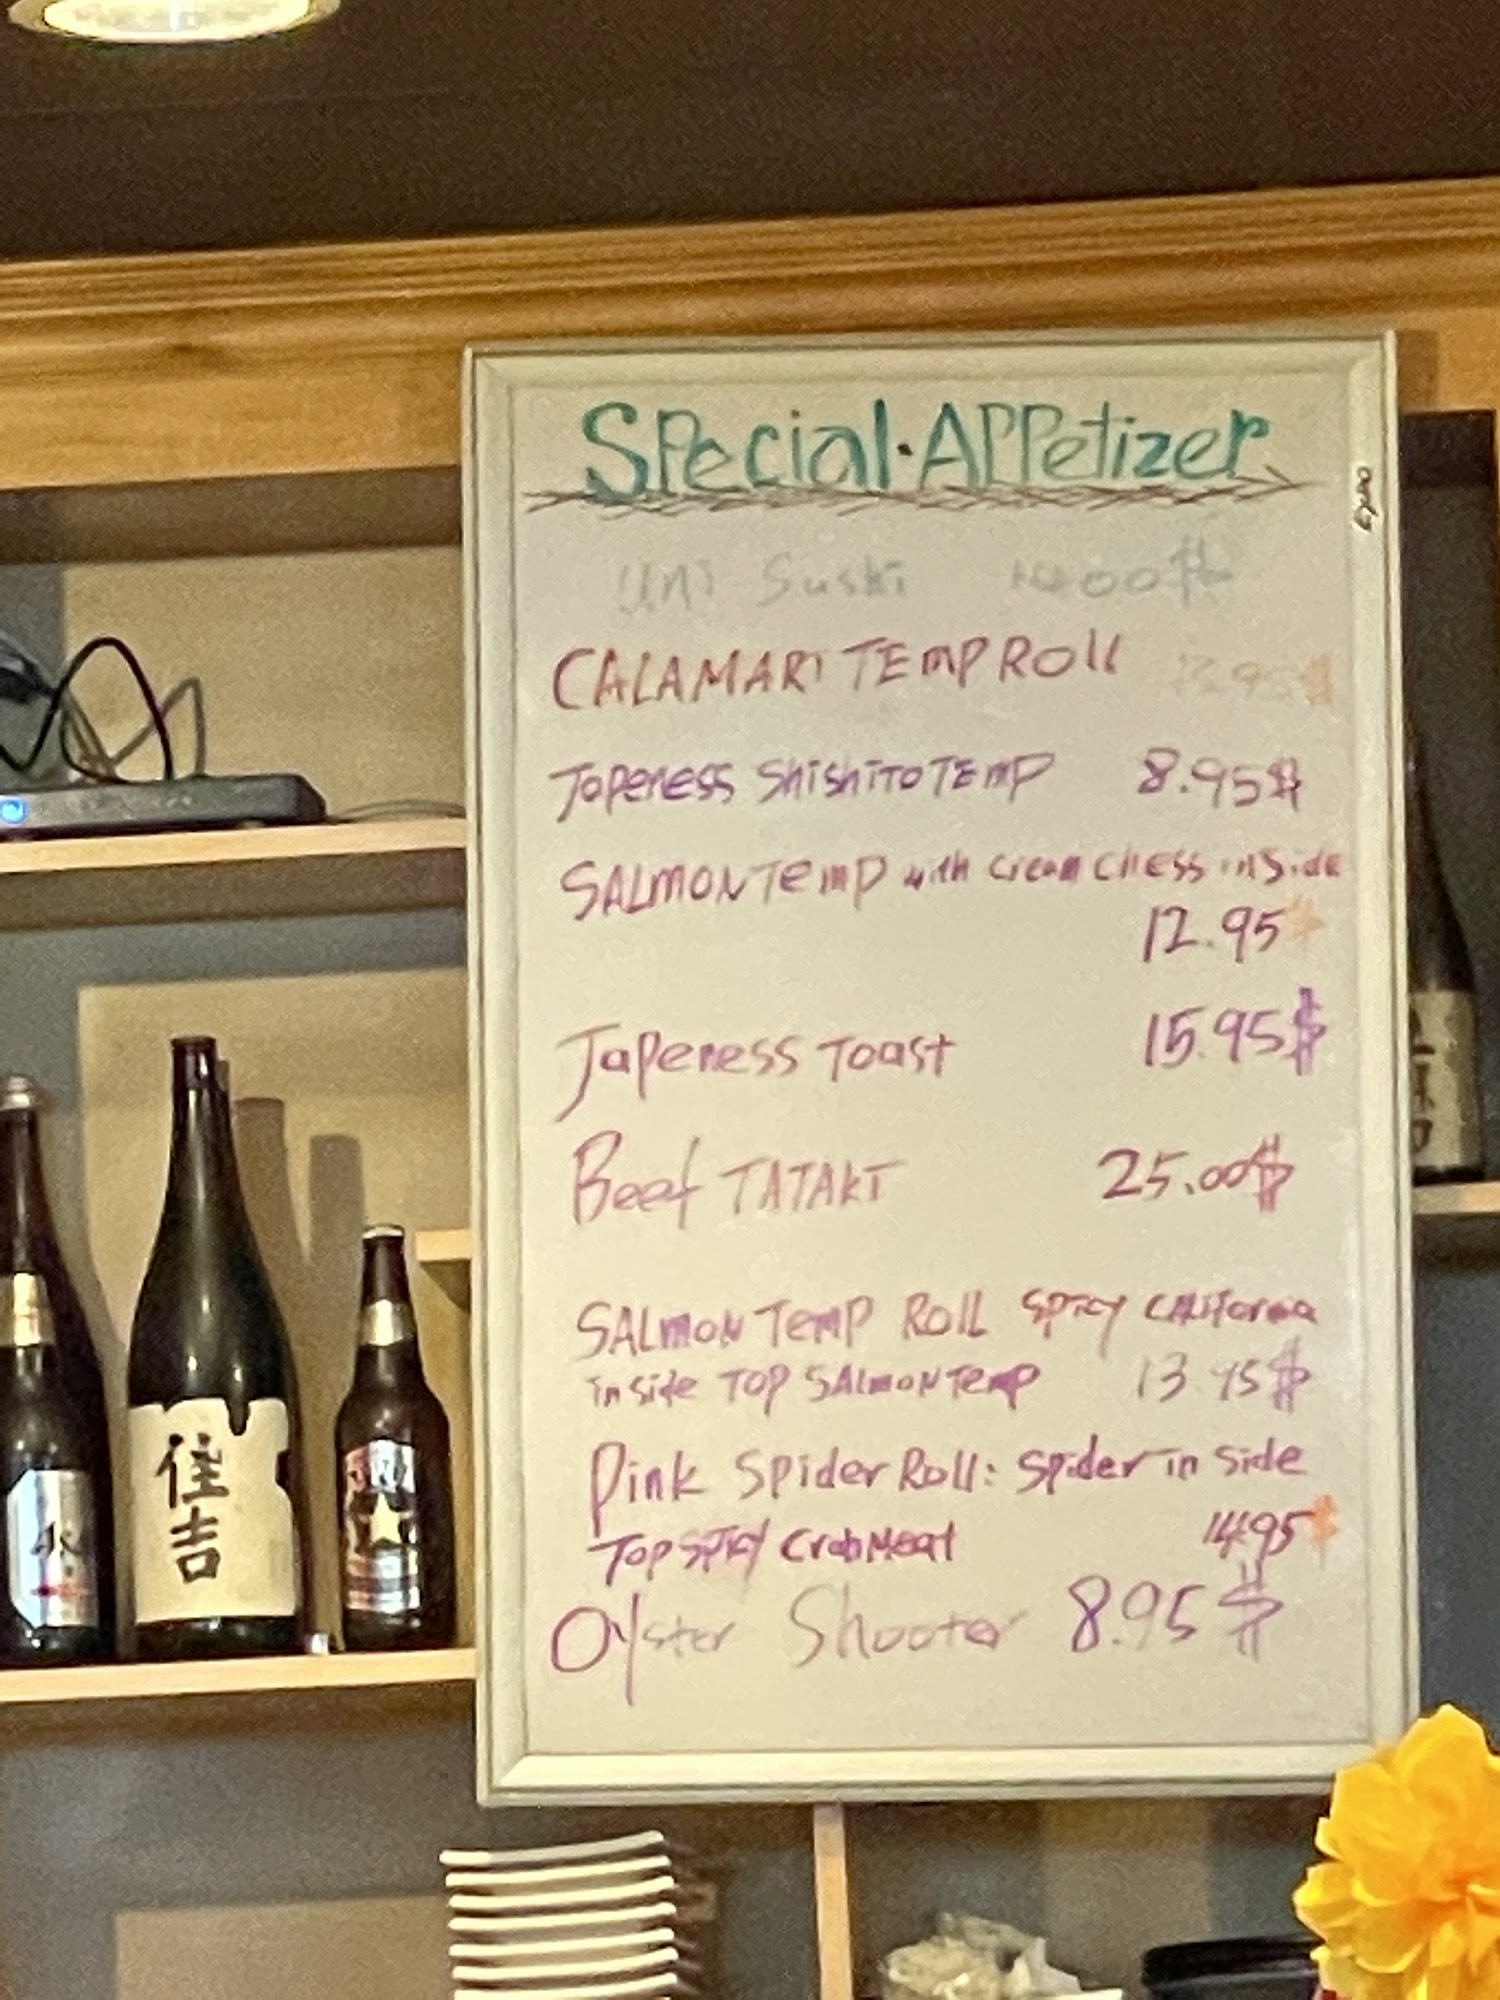 Special · Appetizer
Uni Sushi
CALAMARI TEMP ROll 12.95$
Japeness ShishiTo TEmp 8.95$
SALmON Temp with cream chess inside
12.95$
Japeness Toast 15.95$
Beef TATAKI 25.00$
SALmON Temp ROLL SPICY CAliforina
inside TOP SAlmON Temp 13.95$
Pink Spider Roll: Spider in side
Top SPICY CrabMeat 14.95$
Oyster Shooter 8.95$
住吉